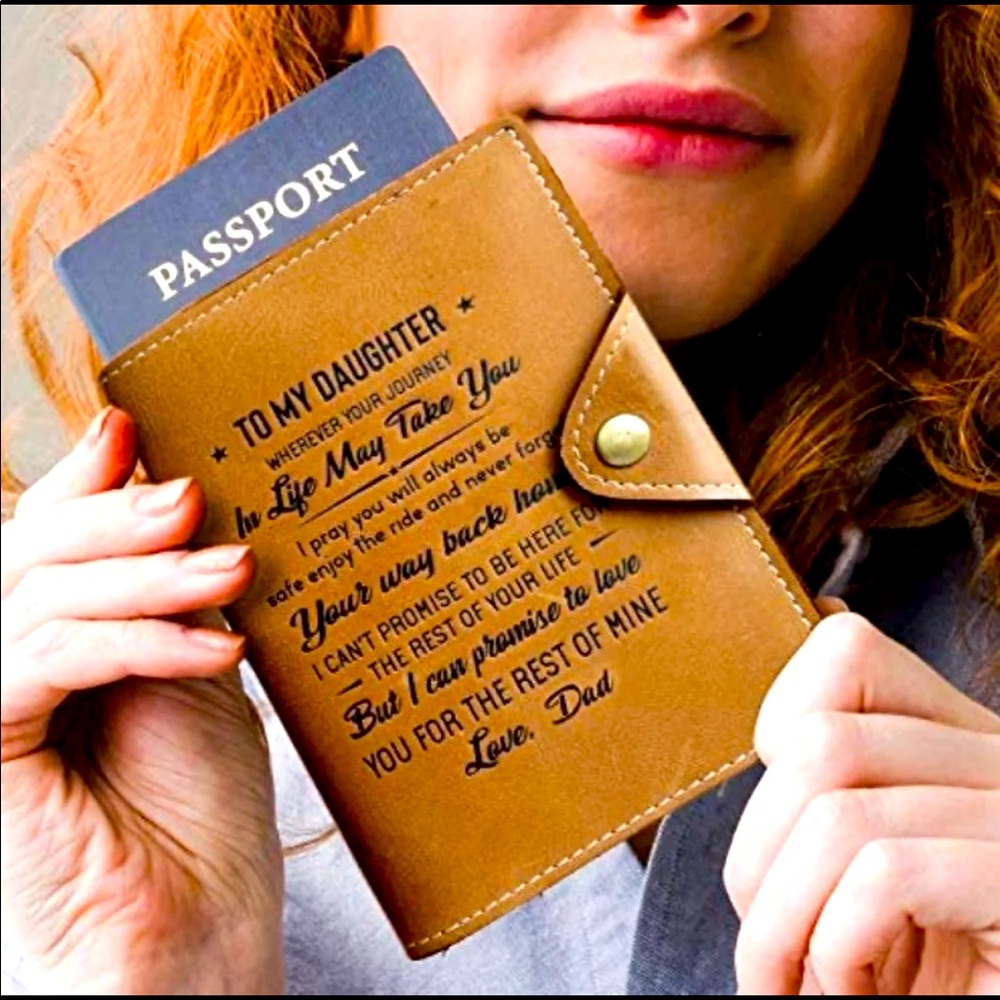 PASSPORT
TO MY DAUGHTER
WHEREVER YOUR JOURNEY
In Life May Take You
I pray you will always be
safe enjoy the ride and never forg
Your way back hom
I CAN'T PROMISE TO BE HERE FO
THE REST OF YOUR LIFE
But I can promise to love
YOU FOR THE REST OF MINE
Love, Dad